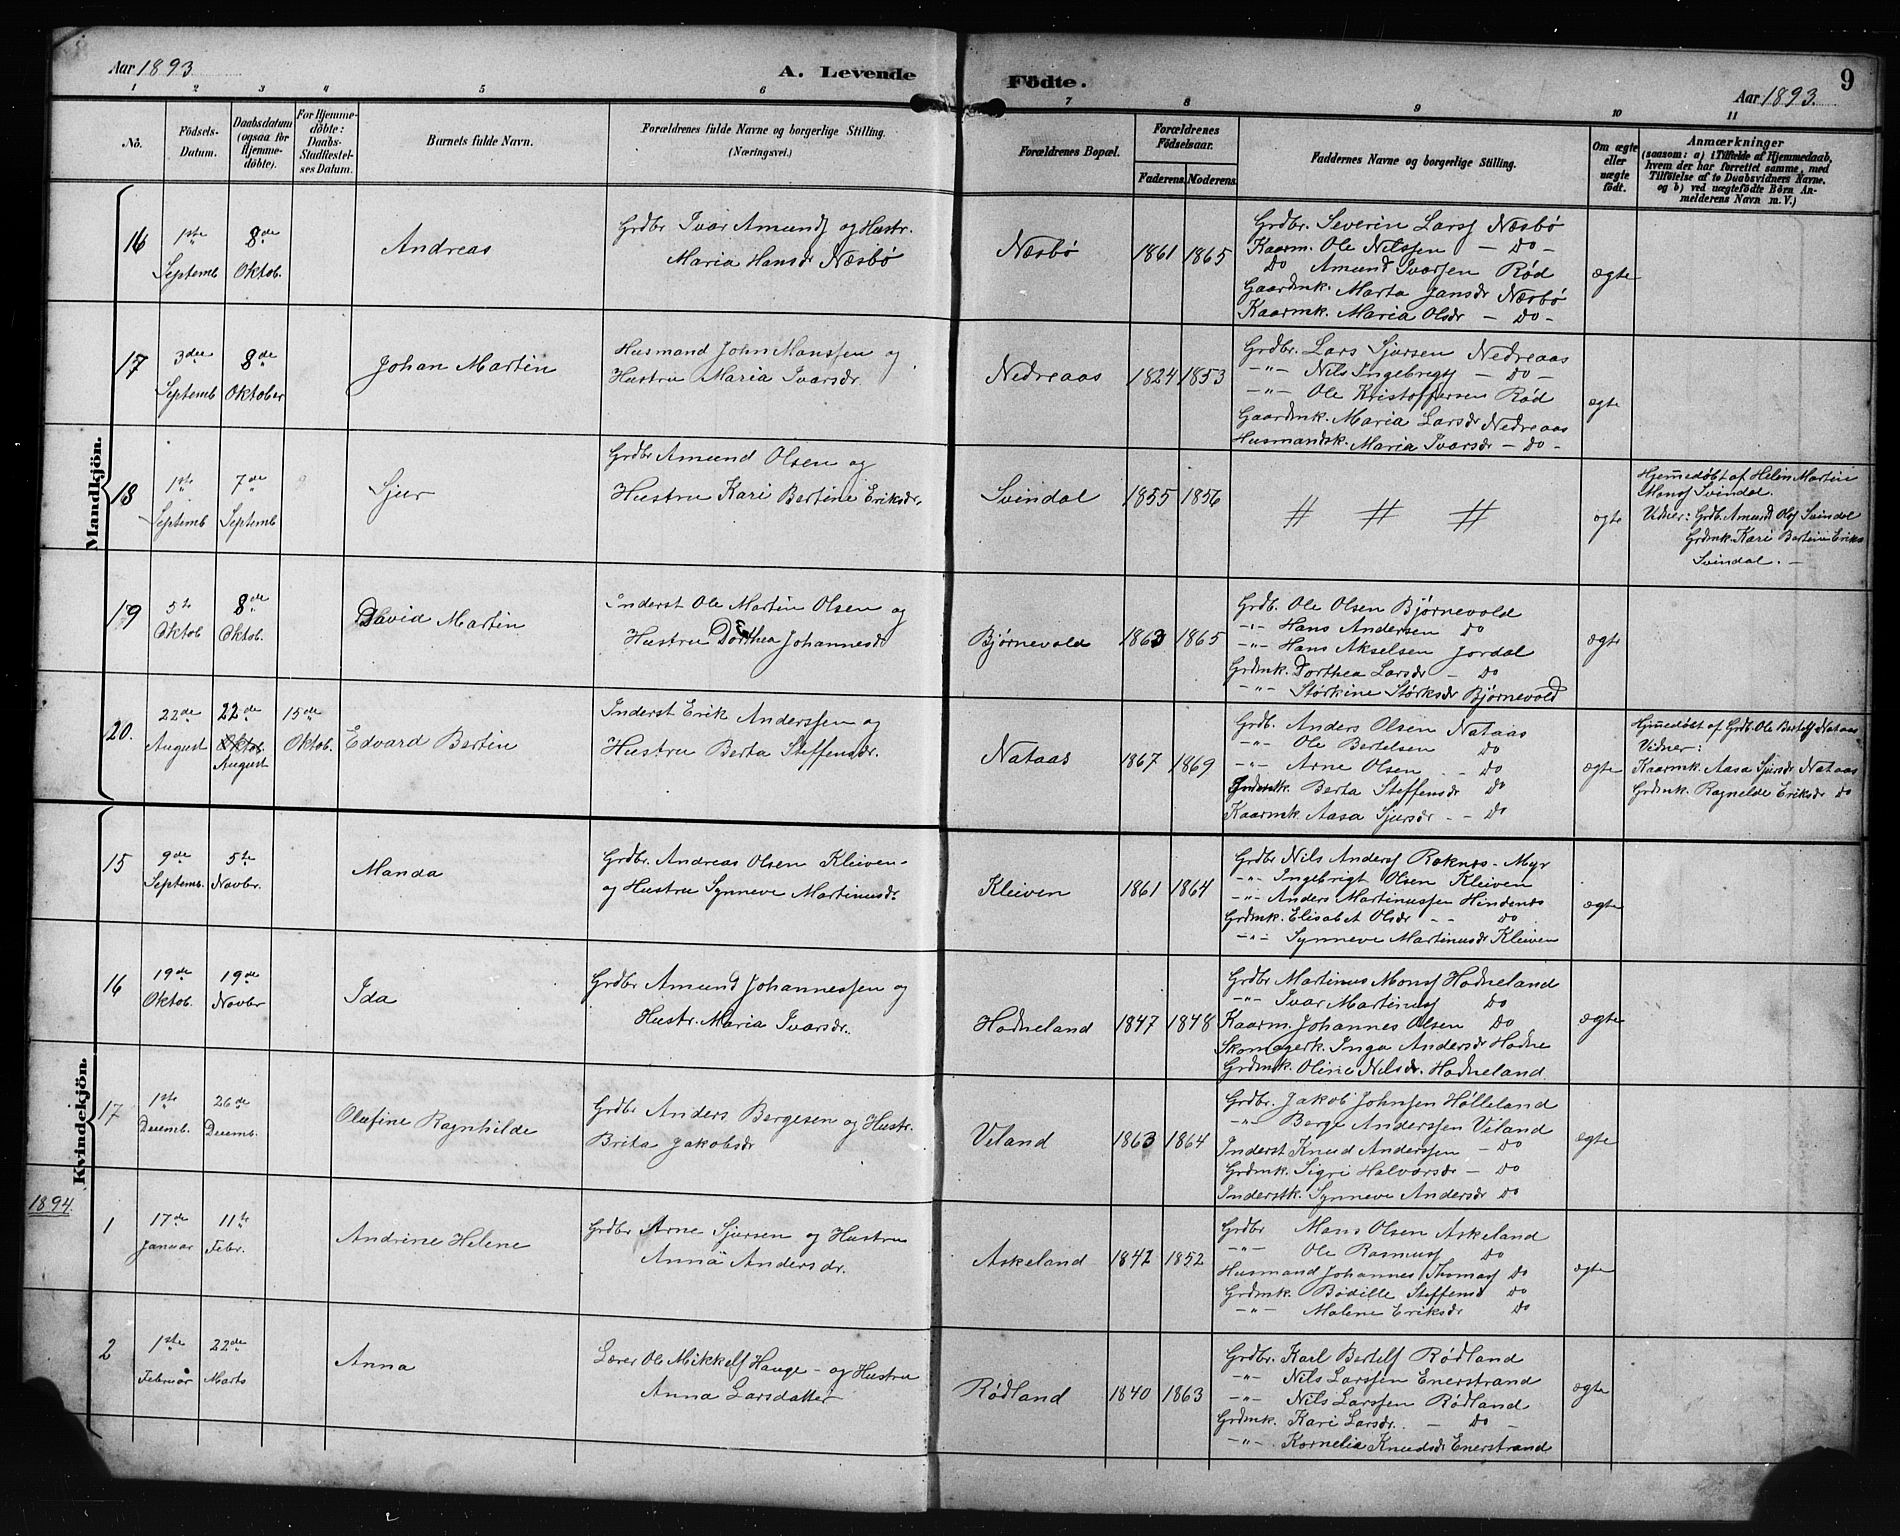 Aar 1893.
A. Levende Födte.
9
Aar 1893.
1 2 3 4 5 6 7 8 9 10 11
No.
Födsels-Datum.
Daabsdatum (ogsaa for Hjemme-döbte).
For Hjemme-döbte: Daabs-Stadfæstel-ses Datum.
Barnets fulde Navn.
Forældrenes fulde Navne og borgerlige Stilling. (Næringsvei.)
Forældrenes Bopæl.
Forældrenes Födselsaar.
Faderens. Moderens.
Faddernes Navne og borgerlige Stilling.
Om ægte eller uægte födt.
Anmærkninger
(saasom: a) i Tilfælde af Hjemmedaab,
hvem der har forrettet samme, med
Tilföielse af to Daabsvidners Navne,
og b) ved uægtefödte Börn An-
melderens Navn m. V.)
Mandkjön.
16
1ste Septemb
8de Oktob.
Andreas
Grdbr Ivar Amunds og Hustr.
Maria Hansdr Næsbø
Næsbø
1861 1865
Grdbr. Severin Lars Næsbø
Kaarm. Ole Nilssen — Do —
Do Amund Ivarsen Rød
Gaardmk. Marta Jansdr Næsbø
Kaarmk. Maria Olsdr — Do —
ægte
17
3die Septemb
8de Oktober
Johan Martin
Husmand John Monssen og
Hustru Maria Ivarsdr.
Nedreaas
1824 1853
Grdbr. Lars Sjursen Nedreaas
—"— Nils Ingebrigts — Do —
—"— Ole Kristoffersen Rød
Gaardmk. Maria Larsdr Nedreaas
Husmandsk. Maria Ivarsdr — Do —
ægte
18
1ste Septemb
7de Septemb
Sjur
Grdbr Amund Olsen og
Hustru Kari Bertine Eriksdr.
Svindal
1855 1856
# # #
ægte
Hjemmedøbt af Helen Martin
Mons Svindal.
Vidner: Grdb. Amund Ols Svindal
Grdmk. Kari Bertine Eriks
Svindal. —
19
5te Oktob
8de Oktob.
David Martin
Inderst Ole Martin Olsen og
Hustru Dorthea Johannesdr
Bjørnevold
1863 1865
Grdb. Ole Olsen Bjørnevold
—"— Hans Andersen Do
—"— Hans Akselsen Jordal
Grdmk. Dorthea Larsdr — Do
—"— Størkine Størksdr Bjørnevold
ægte
20.
22de August
22de Oktob. August
15de Oktob.
Edvard Bertin
Inderst Erik Anderssen og
Hustru Berta Steffensdr.
Nataas
1867 1869
Grdb. Anders Olsen Nataas
—"— Ole Bertelsen Do
—"— Arne Olsen — Do
Inderstk. Berta Steffensdr Do
Kaarmk. Aasa Sjursdr. — Do
ægte
Hjemmedøbt af Grdb. Ole Bertels Nataas
Vidner:
Kaarmk. Aasa Sjursdr Nataas
Grdmk. Ragnilde Eriksdr Do
Kvindekjön.
15
9de Septemb.
5te Novbr.
Manda
Grdbr. Andreas Olsen Kleiven
og Hustru Synneve Martinusdr.
Kleiven
1861 1864
Grdbr Nils Anders Roknes-Myr
—"— Ingebrigt Olsen Kleiven
—"— Anders Martinussen Hindenes
Grdmk. Elisabet Olsdr — Do
—"— Synneve Martinusdr Kleiven
ægte
16
19de Oktob.
19de Novbr
Ida
Grdbr Amund Johannessen og
Hustr. Maria Ivarsdr.
Hodneland
1847 1848
Grdbr Martinus Mons Hodneland
—"— Ivar Martinus Do
Kaarm. Johannes Olsen Do
Skomagerk. Inga Andersdr Hodne
Grdmk. Oline Nilsdr. Hodneland.
ægte
17
1ste Decemb.
26de Decemb.
Olufine Ragnhilde
Grdbr Anders Bergesen og Hustr.
Brita Jakobsdr
Veland
1863 1864
Grdbr. Jakob Johnsen Hølleland
—"— Berge Anderssen Veland
Inderst Knud Anderssen — Do
Grdmk. Sigri Halvorsdr — Do
Inderstk. Synneve Andersdr Do
ægte
1894.
1
17de Januar
11te Febr.
Andrine Helene
Grdbr Arne Sjursen og Hustru
Anna Andersdr.
Askeland
1847 1852
Grdbr Mons Olsen Askeland
—"— Ole Rasmus Do
Husmand Johannes Thomas Do
Grdmk. Bødille Steffensd Do
—"— Malene Eriksdr Do
ægte
2
1ste Februar
22de Marts
Anna
Lærer Ole Mikkels Hauge — og Hustru
Anna Larsdatter
Rødland
1840 1863
Grdbr. Karl Bertels Rødland
—"— Nils Larssen Enerstrand
—"— Nils Larssen Rødland
Grdmk. Kari Larsdr. — Do —
—"— Kornelia Knudsdr Enerstrand
ægte